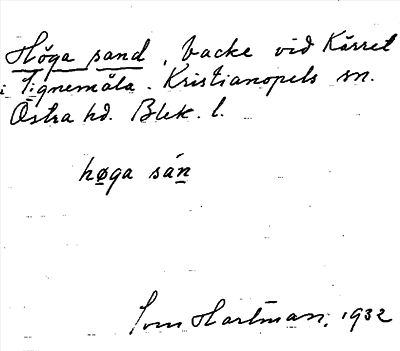 Höga sand, backe vid Kärret
i Tignemåla. Kristianopels sn.
Östra hd. Blek. l.
høga sán
Tom Hartman, 1932